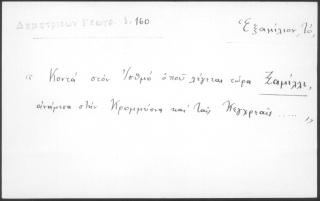 Δημητριέων Γεωγρ. 1. 160
Ἑξαμίλιον, Τό,
« Κοντά στόν Ἰσθμό ὁπού λέγεται τώρα Ξαμίλλι,
ἀνάμεσα στήν Κρομμύονα καί ταῖς Κεγχρεαῖς ..... »